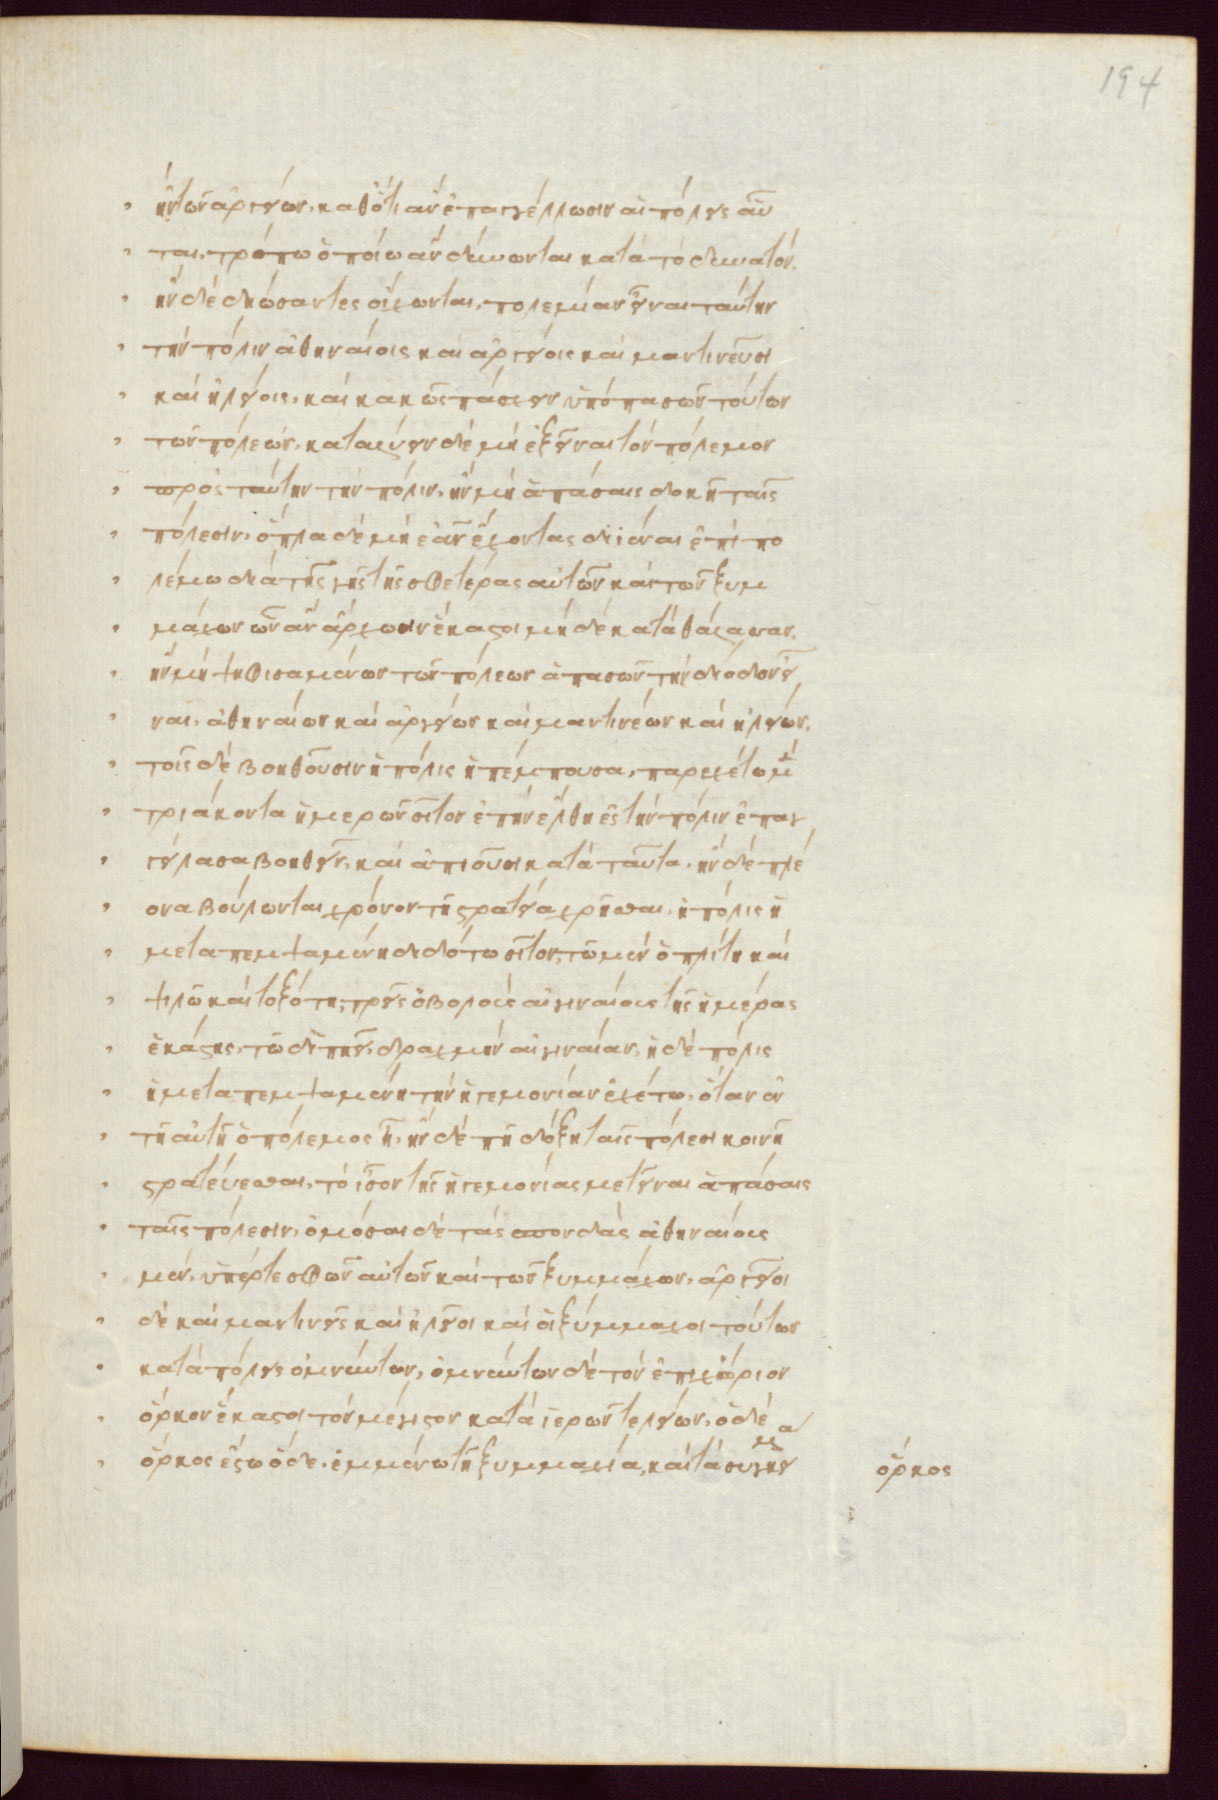 194
ἢ τῶν ἀργείων, καθότι ἂν ἐπαγγέλλωσιν αἱ πόλεις αὗ
ται, τρόπω ὁποίω ἂν δύνωνται κατὰ τὸ δυνατόν.
ἢν δὲ δηώσαντες οἴχωνται, πολεμίαν εἶναι ταύτην
τὴν πόλιν ἀθηναίοις καὶ ἀργείοις καὶ μαντινεῦσι
καὶ ἠλείοις, καὶ κακῶς πάσχειν ὑπὸ πασῶν τούτων
τῶν πόλεων, καταλύειν δὲ μὴ ἐξεῖναι τὸν πόλεμον
πρὸς ταύτην τὴν πόλιν, ἢν μὴ ἁπάσαις δοκῆ ταῖς
πόλεσιν, ὅπλα δὲ μὴ ἐὰν ἔχοντας διϊέναι ἐπὶ πο
λέμω διὰ τῆς γῆς τῆς σφετέρας αὐτῶν καὶ τῶν ξυμ
μάχων ὧν ἂν ἄρχωσιν ἕκαστοι μηδὲ κατὰ θάλασσαν.
ἢν μὴ ψηφισαμένων τῶν πόλεων ἁπασῶν τὴν δίοδον εἶ
ναι, ἀθηναίων καὶ ἀργείων καὶ μαντινέων καὶ ἠλείων,
τοῖς δὲ βοηθοῦσιν ἡ πόλις ἡ πέμπουσα, παρεχέτω μέ
τριάκοντα ἡμερῶν σῖτον ἐπὴν ἔλθη ἐς τὴν πόλιν ἐπαγ
γείλασα βοηθεῖν, καὶ ἀπιοῦσι κατὰ ταῦτα. ἢν δὲ πλέ
ονα βούλωνται χρόνον τῆ στρατεία χρῆσθαι, ἡ πόλις ἡ
μεταπεμψαμένη διδότω σῖτον, τῶ μὲν ὁπλίτη καὶ
ψιλῶ καὶ τοξότη, τρεῖς ὀβολοὺς αἰγιναίους τῆς ἡμέρας
ἑκάστης, τῶ δὲ ἱππεῖ, δραχμὴν αἰγιναίαν, ἡ δὲ πόλις
ἡ μεταπεμψαμένη τὴν ἡγεμονίαν ἐχέτω, ὅταν ἐν
τῆ αὐτῆ ὁ πόλεμος ἦ, ἢν δέ πη δόξη ταῖς πόλεσι κοινῆ
στρατεύεσθαι, τὸ ἴσον τῆς ἡγεμονίας μετεῖναι ἁπάσαις
ταῖς πόλεσιν, ὀμόσαι δὲ τὰς σπονδὰς ἀθηναίους
μὲν, ὑπέρ τε σφῶν αὐτῶν καὶ τῶν ξυμμάχων, ἀργεῖοι
δὲ καὶ μαντινεῖς καὶ ἠλεῖοι καὶ οἱ ξύμμαχοι τούτων
κατὰ πόλεις ὀμνύντων, ὀμνύντων δὲ τὸν ἐπιχώριον
ὅρκον ἕκαστοι τὸν μέγιστον κατὰ ἱερῶν τελείων, ὁ δὲ
ὅρκος ἔστω ὅδε. ἐμμένω τῆ ξυμμαχία, κατὰ τὰ συγκείμ
ὅρκος